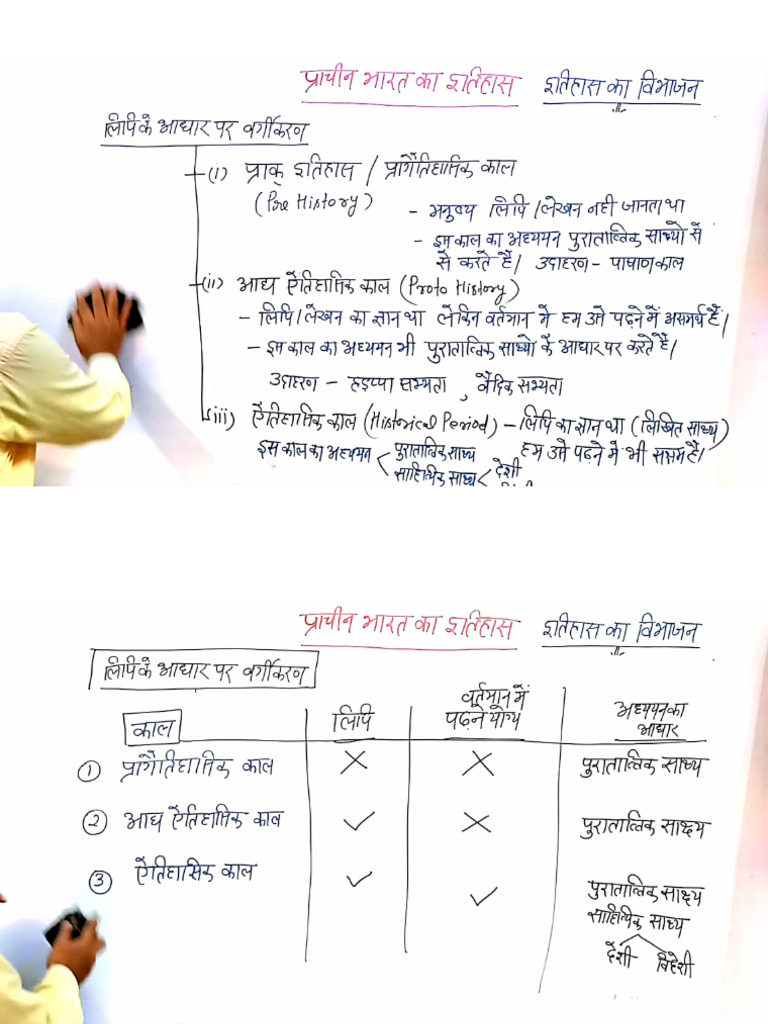 प्राचीन भारत का इतिहास इतिहास का विभाजन
लिपि के आधार पर वर्गीकरण
(i) प्राक् इतिहास / प्रागैतिहासिक काल
(Pre History) - मनुष्य लिपि/लेखन नही जानता था
- इस काल का अध्ययन पुरातात्विक साक्ष्यो से
से करते हैं। उदाहरण - पाषाण काल
(ii) आद्य ऐतिहासिक काल (Proto History)
- लिपि/लेखन का ज्ञान था लेकिन वर्तमान में हम उसे पढ़ने में असमर्थ हैं।
- इस काल का अध्ययन भी पुरातात्विक साक्ष्यो के आधार पर करते हैं।
उदाहरण - हड़प्पा सभ्यता , वैदिक सभ्यता
(iii) ऐतिहासिक काल (Historical Period) - लिपि का ज्ञान था (लिखित साक्ष्य)
इस काल का अध्ययन < पुरातात्विक साक्ष्य हम उसे पढ़ने में भी सक्षम हैं।
साहित्यिक साक्ष्य < देशी
प्राचीन भारत का इतिहास इतिहास का विभाजन
लिपि के आधार पर वर्गीकरण
काल लिपि वर्तमान में पढ़ने योग्य अध्ययन का आधार
① प्रागैतिहासिक काल × × पुरातात्विक साक्ष्य
② आद्य ऐतिहासिक काल ✓ × पुरातात्विक साक्ष्य
③ ऐतिहासिक काल ✓ ✓ पुरातात्विक साक्ष्य
साहित्यिक साक्ष्य
देशी विदेशी